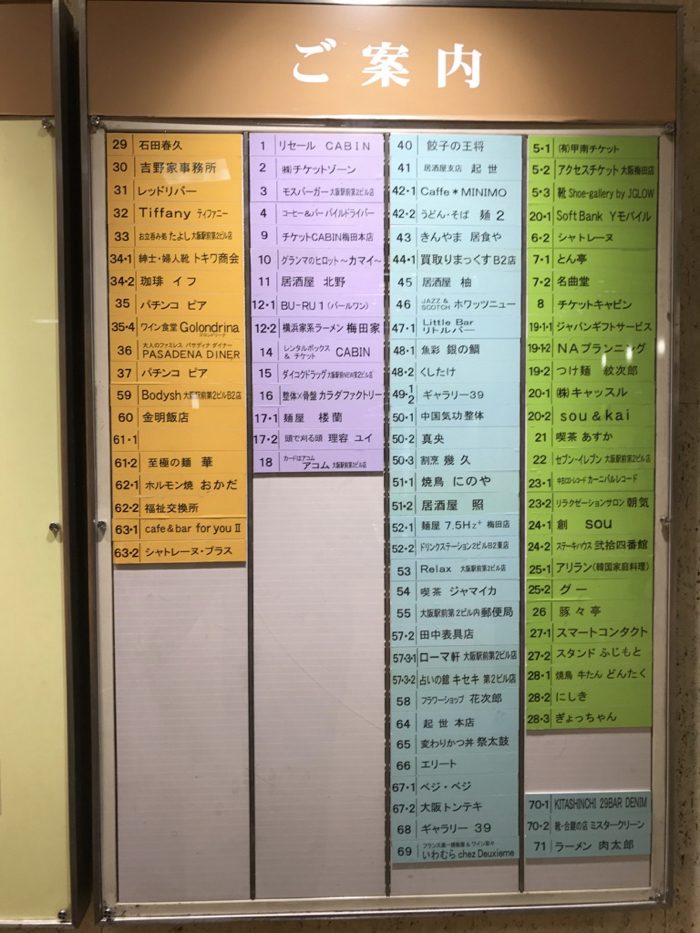 ご案内
29 石田春久
30 吉野家事務所
31 レッドリバー
32 Tiffany ティファニー
33 お立呑み処 たよし 大阪駅前第2ビル店
34・1 紳士・婦人靴 トキワ商会
34・2 珈琲 イフ
35 パチンコ ピア
35・4 ワイン食堂 Golondrina
36 大人のファミレス パサディナ ダイナー
PASADENA DINER
37 パチンコ ピア
59 Bodysh 大阪駅前第2ビルB2店
60 金明飯店
61・1
61・2 至極の麺 華
62・1 ホルモン焼 おかだ
62・2 福祉交換所
63・1 cafe & bar for you Ⅱ
63・2 シャトレーヌ・プラス
1 リセール CABIN
2 ㈱チケットゾーン
3 モスバーガー 大阪駅前第2ビル店
4 コーヒー&バー パイルドライバー
9 チケットCABIN梅田本店
10 グランマのヒロット〜カマイ〜
11 居酒屋 北野
12・1 BU-RU1(バールワン)
12・2 横浜家系ラーメン 梅田家
14 レンタルボックス
& チケット CABIN
15 ダイコクドラッグ 大阪駅前NEW第2ビル店
16 整体×骨盤 カラダファクトリー
17・1 麺屋 楼蘭
17・2 頭で刈る頭 理容 ユイ
18 カードはアコム
アコム 大阪駅前第2ビル店
40 餃子の王将
41 居酒屋支店 起世
42・1 Caffe＊MINIMO
42・2 うどん・そば 麺2
43 きんやま 居食や
44・1 買取りまっくす B2店
45 居酒屋 柚
46 JAZZ &
SCOTCH ホワッツニュー
47・1 Little Bar
リトルバー
48・1 魚彩 銀の鯛
48・2 くしたけ
49・1/2 ギャラリー39
50・1 中国気功整体
50・2 真央
50・3 割烹 幾久
51・1 焼鳥 にのや
51・2 居酒屋 照
52・1 麺屋 7.5Hz⁺ 梅田店
52・2 ドリンクステーション2ビルB2東店
53 Relax 大阪駅前第2ビル店
54 喫茶 ジャマイカ
55 大阪駅前第2ビル内郵便局
57・2 田中表具店
57・3・1 ローマ軒 大阪駅前第2ビル店
57・3・2 占いの館 キセキ 第2ビル店
58 フラワーショップ 花次郎
64 起世 本店
65 変わりかつ丼 祭太鼓
66 エリート
67・1 ベジ・ベジ
67・2 大阪トンテキ
68 ギャラリー 39
69 いわむら chez Deuxieme
5・1 ㈲甲南チケット
5・2 アクセスチケット 大阪梅田店
5・3 靴 Shoe-gallery by JGLOW
20・1 SoftBank Yモバイル
6・2 シャトレーヌ
7・1 とん亭
7・2 名曲堂
8 チケットキャビン
19・1・1 ジャパンギフトサービス
19・1・2 NAプランニング
19・2 つけ麺 紋次郎
20・1 ㈱キャッスル
20・2 sou & kai
21 喫茶 あすか
22 セブン-イレブン 大阪駅前第2ビル店
23・1 中古CD・レコード カーニバルレコード
23・2 リラクゼーションサロン 朝気
24・1 創 sou
24・2 ステーキハウス 弐拾四番館
25・1 アリラン(韓国家庭料理)
25・2 グー
26 豚々亭
27・1 スマートコンタクト
27・2 スタンド ふじもと
28・1 焼鳥 牛たん どんたく
28・2 にしき
28・3 ぎょっちゃん
70・1 KITASHINCHI 29BAR DENIM
70・2 靴・合鍵の店 ミスタークリーン
71 ラーメン 肉太郎